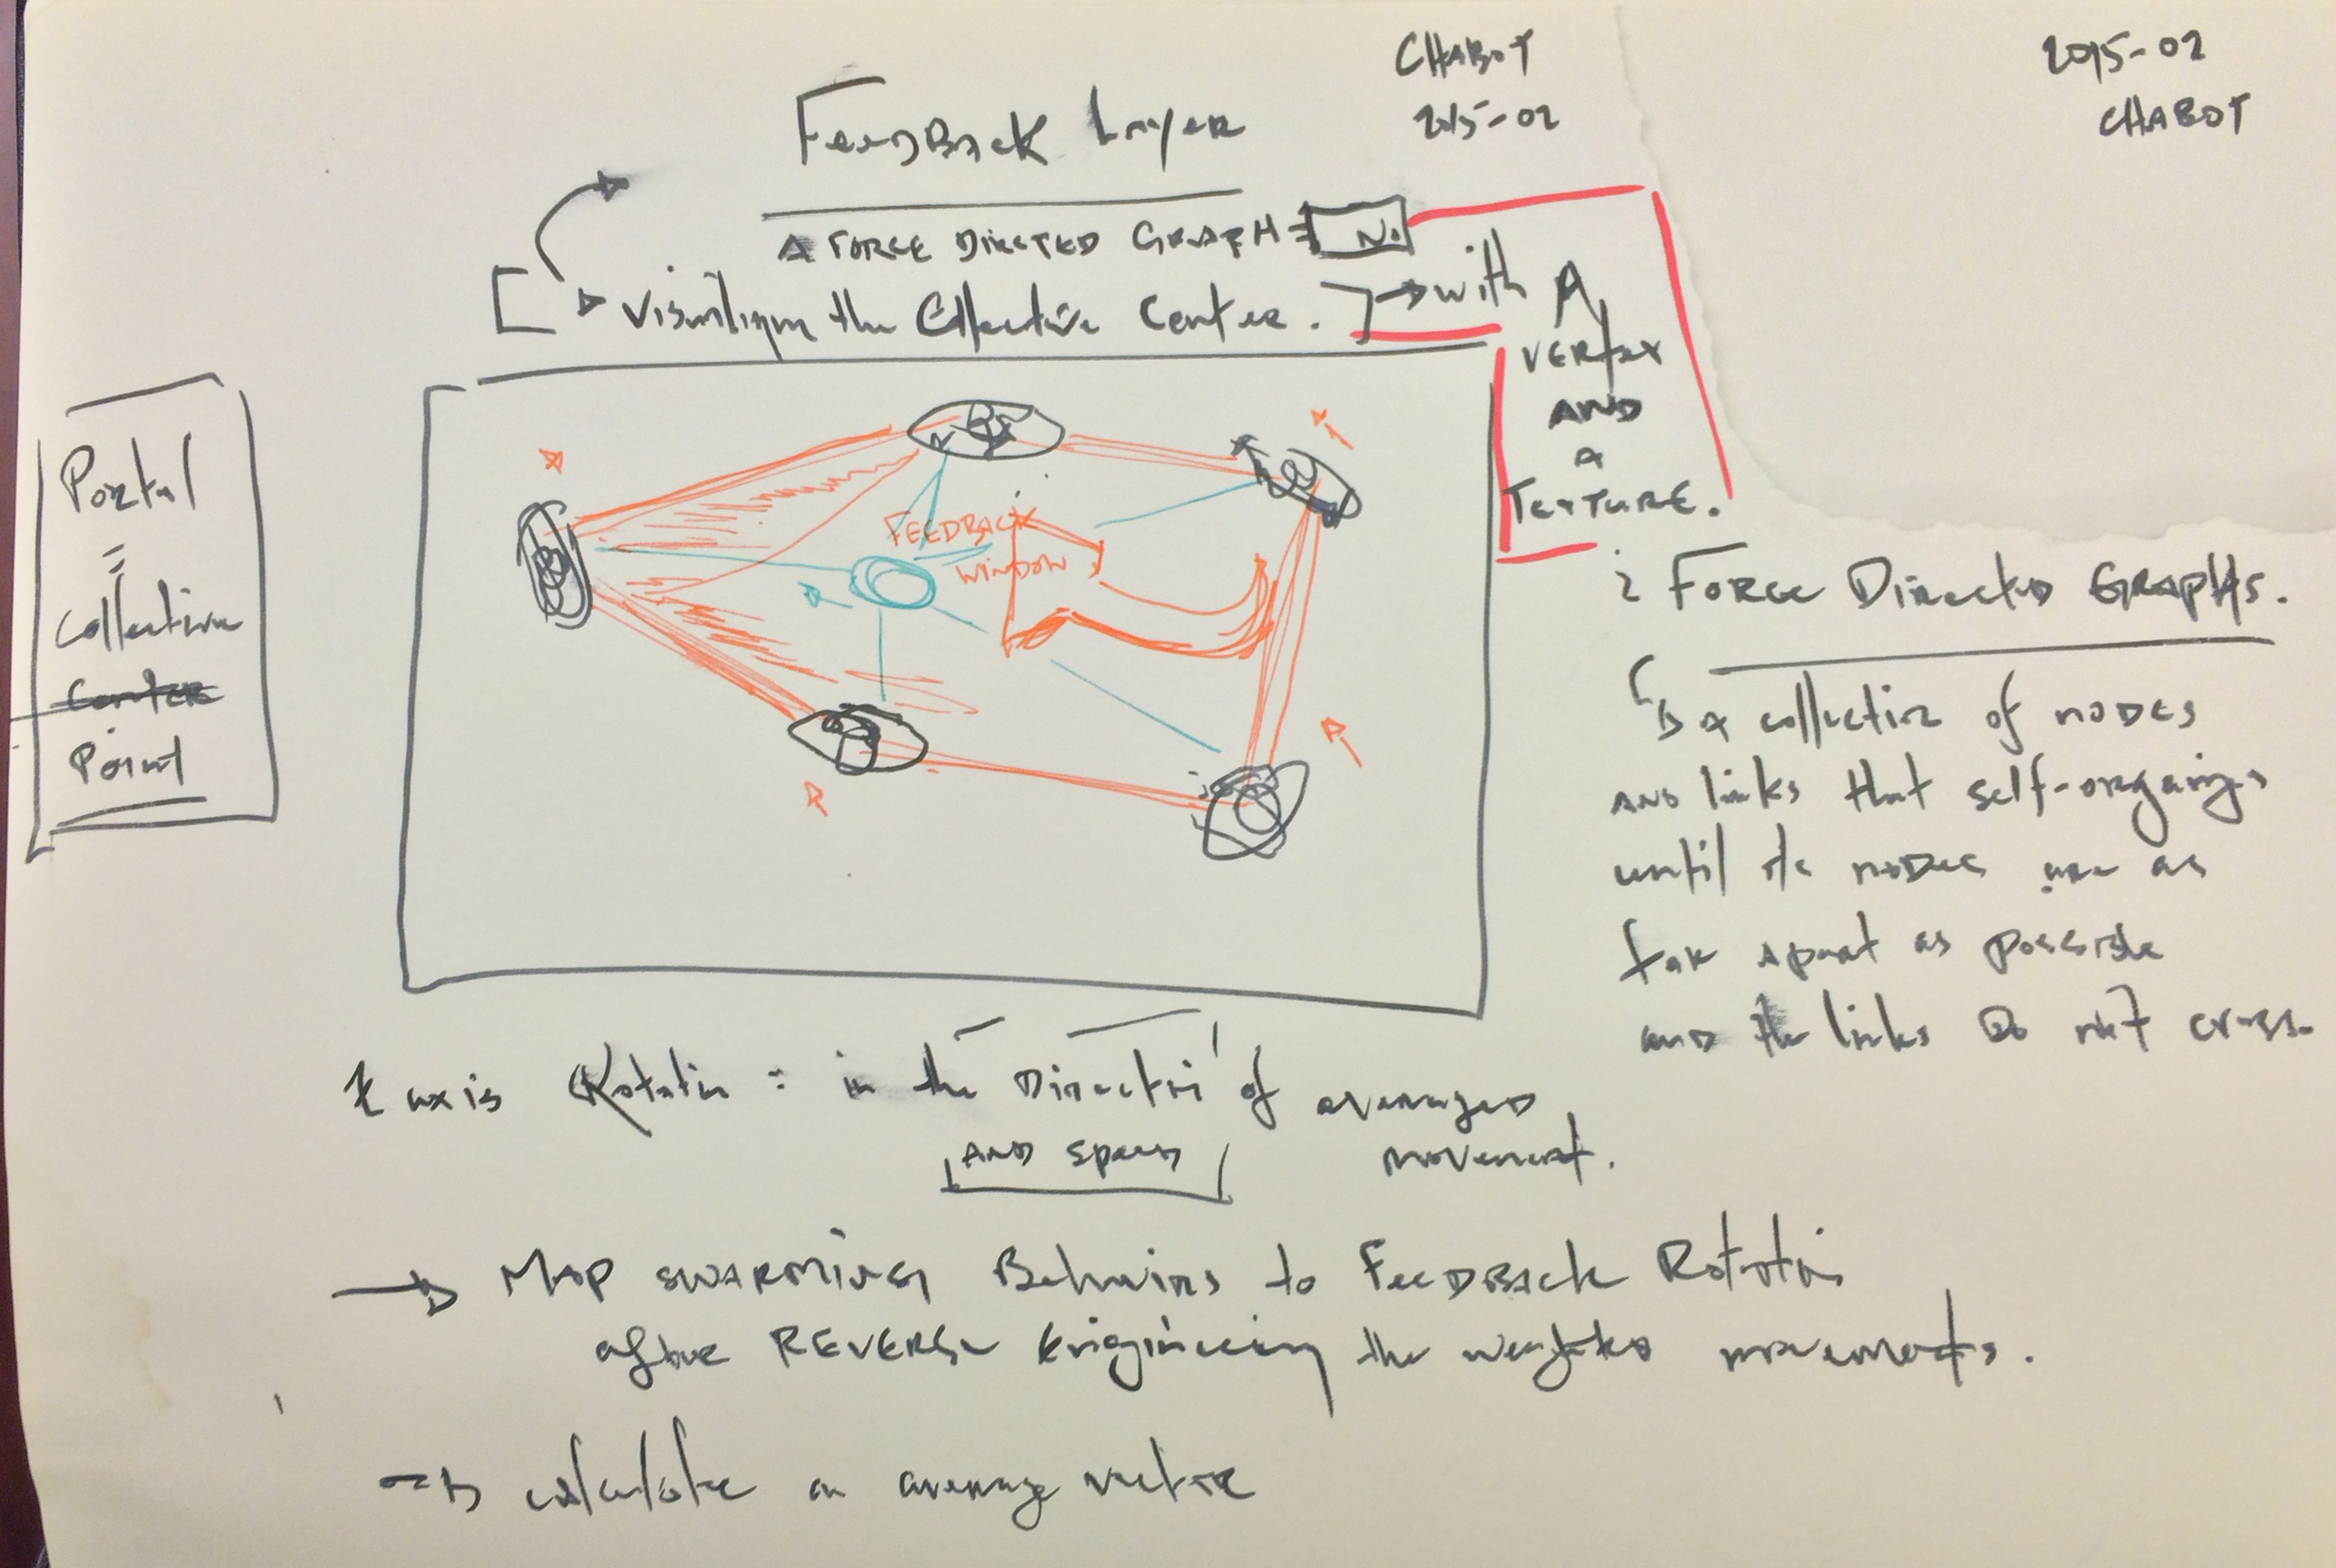 CHABOT
2015-02
2015-02
CHABOT
FeedBack Layer
A FORCE DIRECTED GRAPH = No
Visualizing the Collective Center.
with A
VERTEX
AND
A
TEXTURE.
Portal
=
Collective
Center
Point
FEEDBACK
WINDOW
Force Directed Graphs.
is a collection of nodes
and links that self-organizes
until its nodes are as
far apart as possible
and the links do not cross.
Z axis Rotation : in the Direction of averaged
AND Speed
movement.
Map SWARMING Behaviors to FeedBack Rotation
after REVERSE Engineering the weighted movements.
calculate an average vector